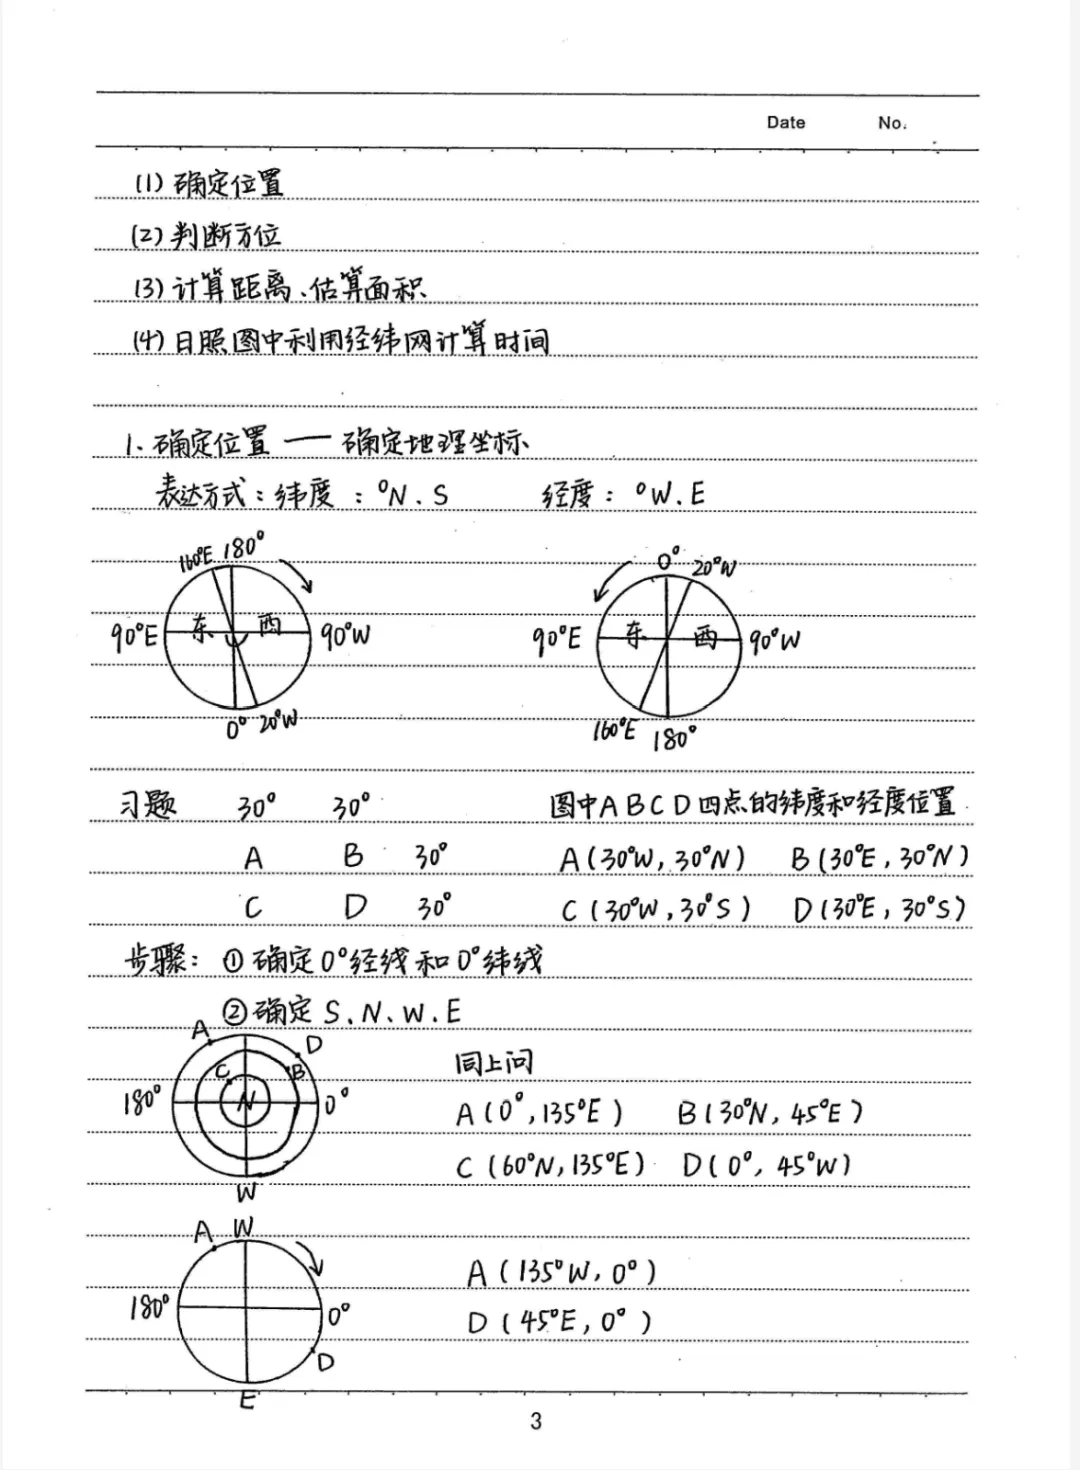 Date No.
(1) 确定位置
(2) 判断方位
(3) 计算距离、估算面积
(4) 日照图中利用经纬网计算时间
1. 确定位置 — 确定地理坐标
表达方式：纬度：°N、S 经度：°W、E
160°E 180° 0° 20°W
90°E 东 西 90°W 90°E 东 西 90°W
0° 20°W 160°E 180°
习题 30° 30° 图中ABCD四点的纬度和经度位置
A B 30° A(30°W, 30°N) B(30°E, 30°N)
C D 30° C(30°W, 30°S) D(30°E, 30°S)
步骤：①确定0°经线和0°纬线
②确定S、N、W、E
A D
同上问
C B
180° N 0° A(0°, 135°E) B(30°N, 45°E)
C(60°N, 135°E) D(0°, 45°W)
W
A W
A(135°W, 0°)
180° 0° D(45°E, 0°)
D
E
3